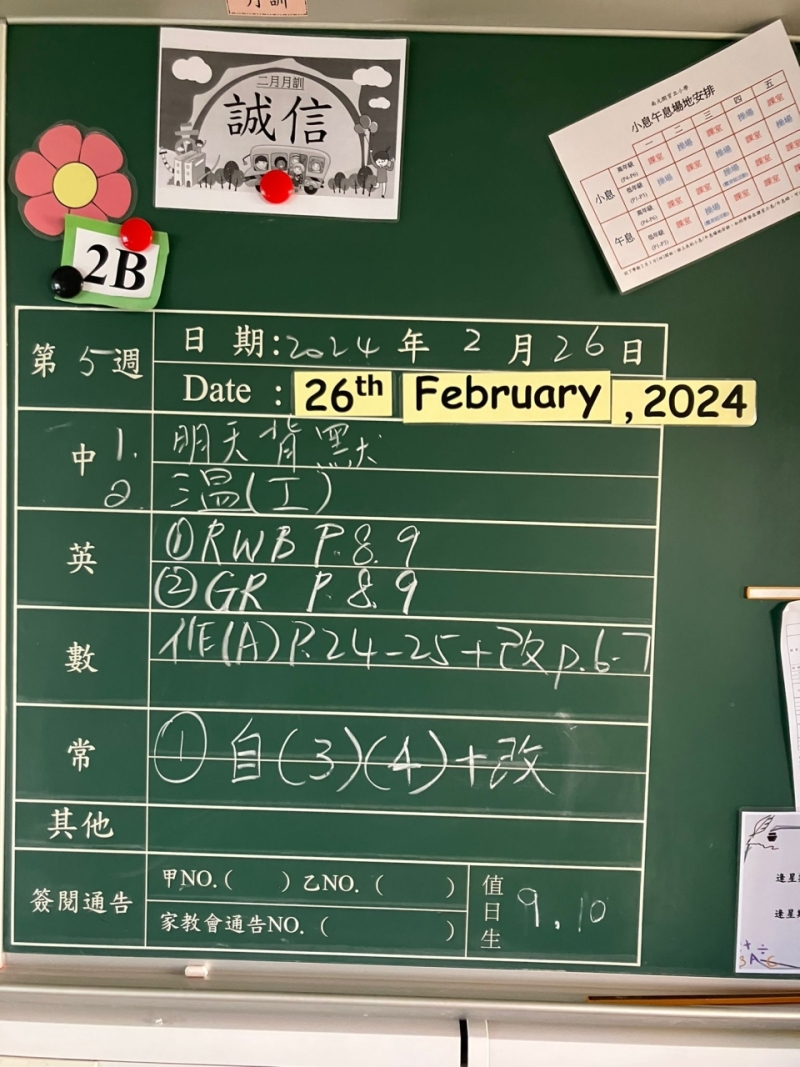 月訓
二月月訓
誠信
2B
南元朗官立小學
小息午息場地安排
一 二 三 四 五
小息
高年級 (P4-P6) 課室 操場 課室 操場 課室
低年級 (P1-P3) 操場 課室 操場 課室 操場
午息
高年級 (P4-P6) 課室
低年級 (P1-P3) 課室 操場
第5週
日 期:2024 年 2 月 26 日
Date : 26th February , 2024
中
1. 明天背默
2. 三溫(工)
英
① RWB P. 8. 9
② GR P. 8. 9
數
作(A) P. 24-25 + 改 p. 6-7
常
① 自(3)(4)+改
其他
簽閱通告
甲NO.( ) 乙NO. ( )
家教會通告NO. ( )
值日生
9. 10
逢星
逢星